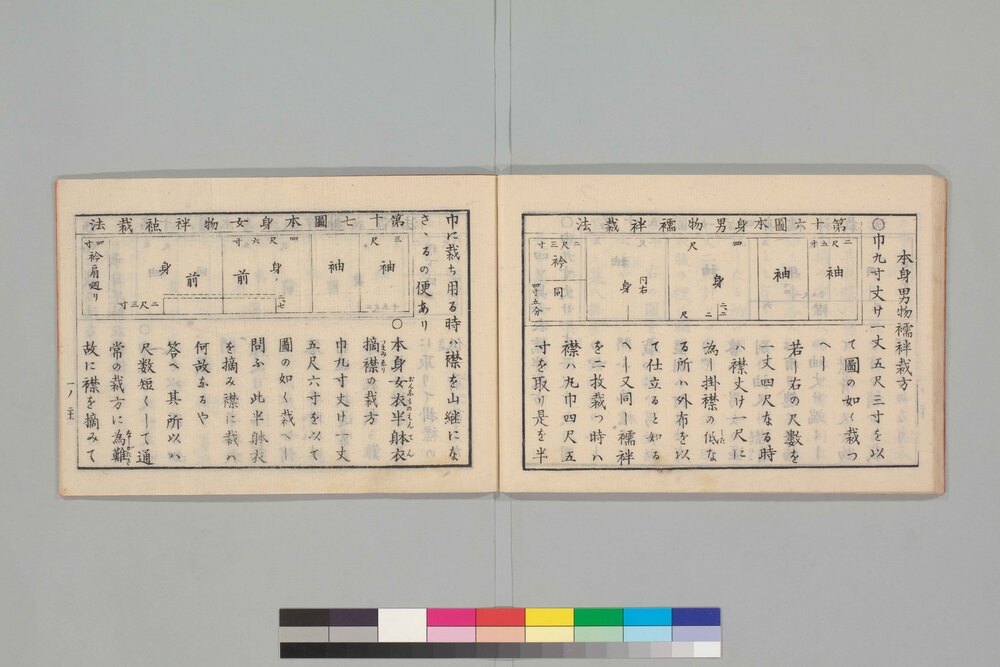 本身男物襦袢裁方
〇巾九寸丈け一丈五尺三寸を以
て圖の如く裁つ
へし
若し右の尺數を
一丈四尺なる時
ハ襟丈け一尺に
為し掛襟の低な
る所ハ外布を以
て仕立ると如る
へし又同し襦袢
を二枚裁つ時ハ
襟ハ九巾四尺五
寸を取り是を半
第十六圖本身男物襦袢裁法
二尺五寸
袖
袖
四尺
身
二尺
身
同右
二尺三寸
衿
同
四寸五分
巾に裁ち用る時ハ襟を山継になさゝるの便あり
〇本身女衣半躰衣
摘襟の裁方
巾九寸丈け壱丈
五尺六寸を以て
圖の如く裁へし
問ふ此半躰衣
を摘み襟に裁ハ
何故なるや
答へ其所以ハ
尺数短くして通
常の裁方に為難
故に襟を摘みて
第十七圖本身女物袢裁法
三尺
袖
袖
四尺六寸
身
前
前
身
二尺三寸
四寸
衿肩廻り